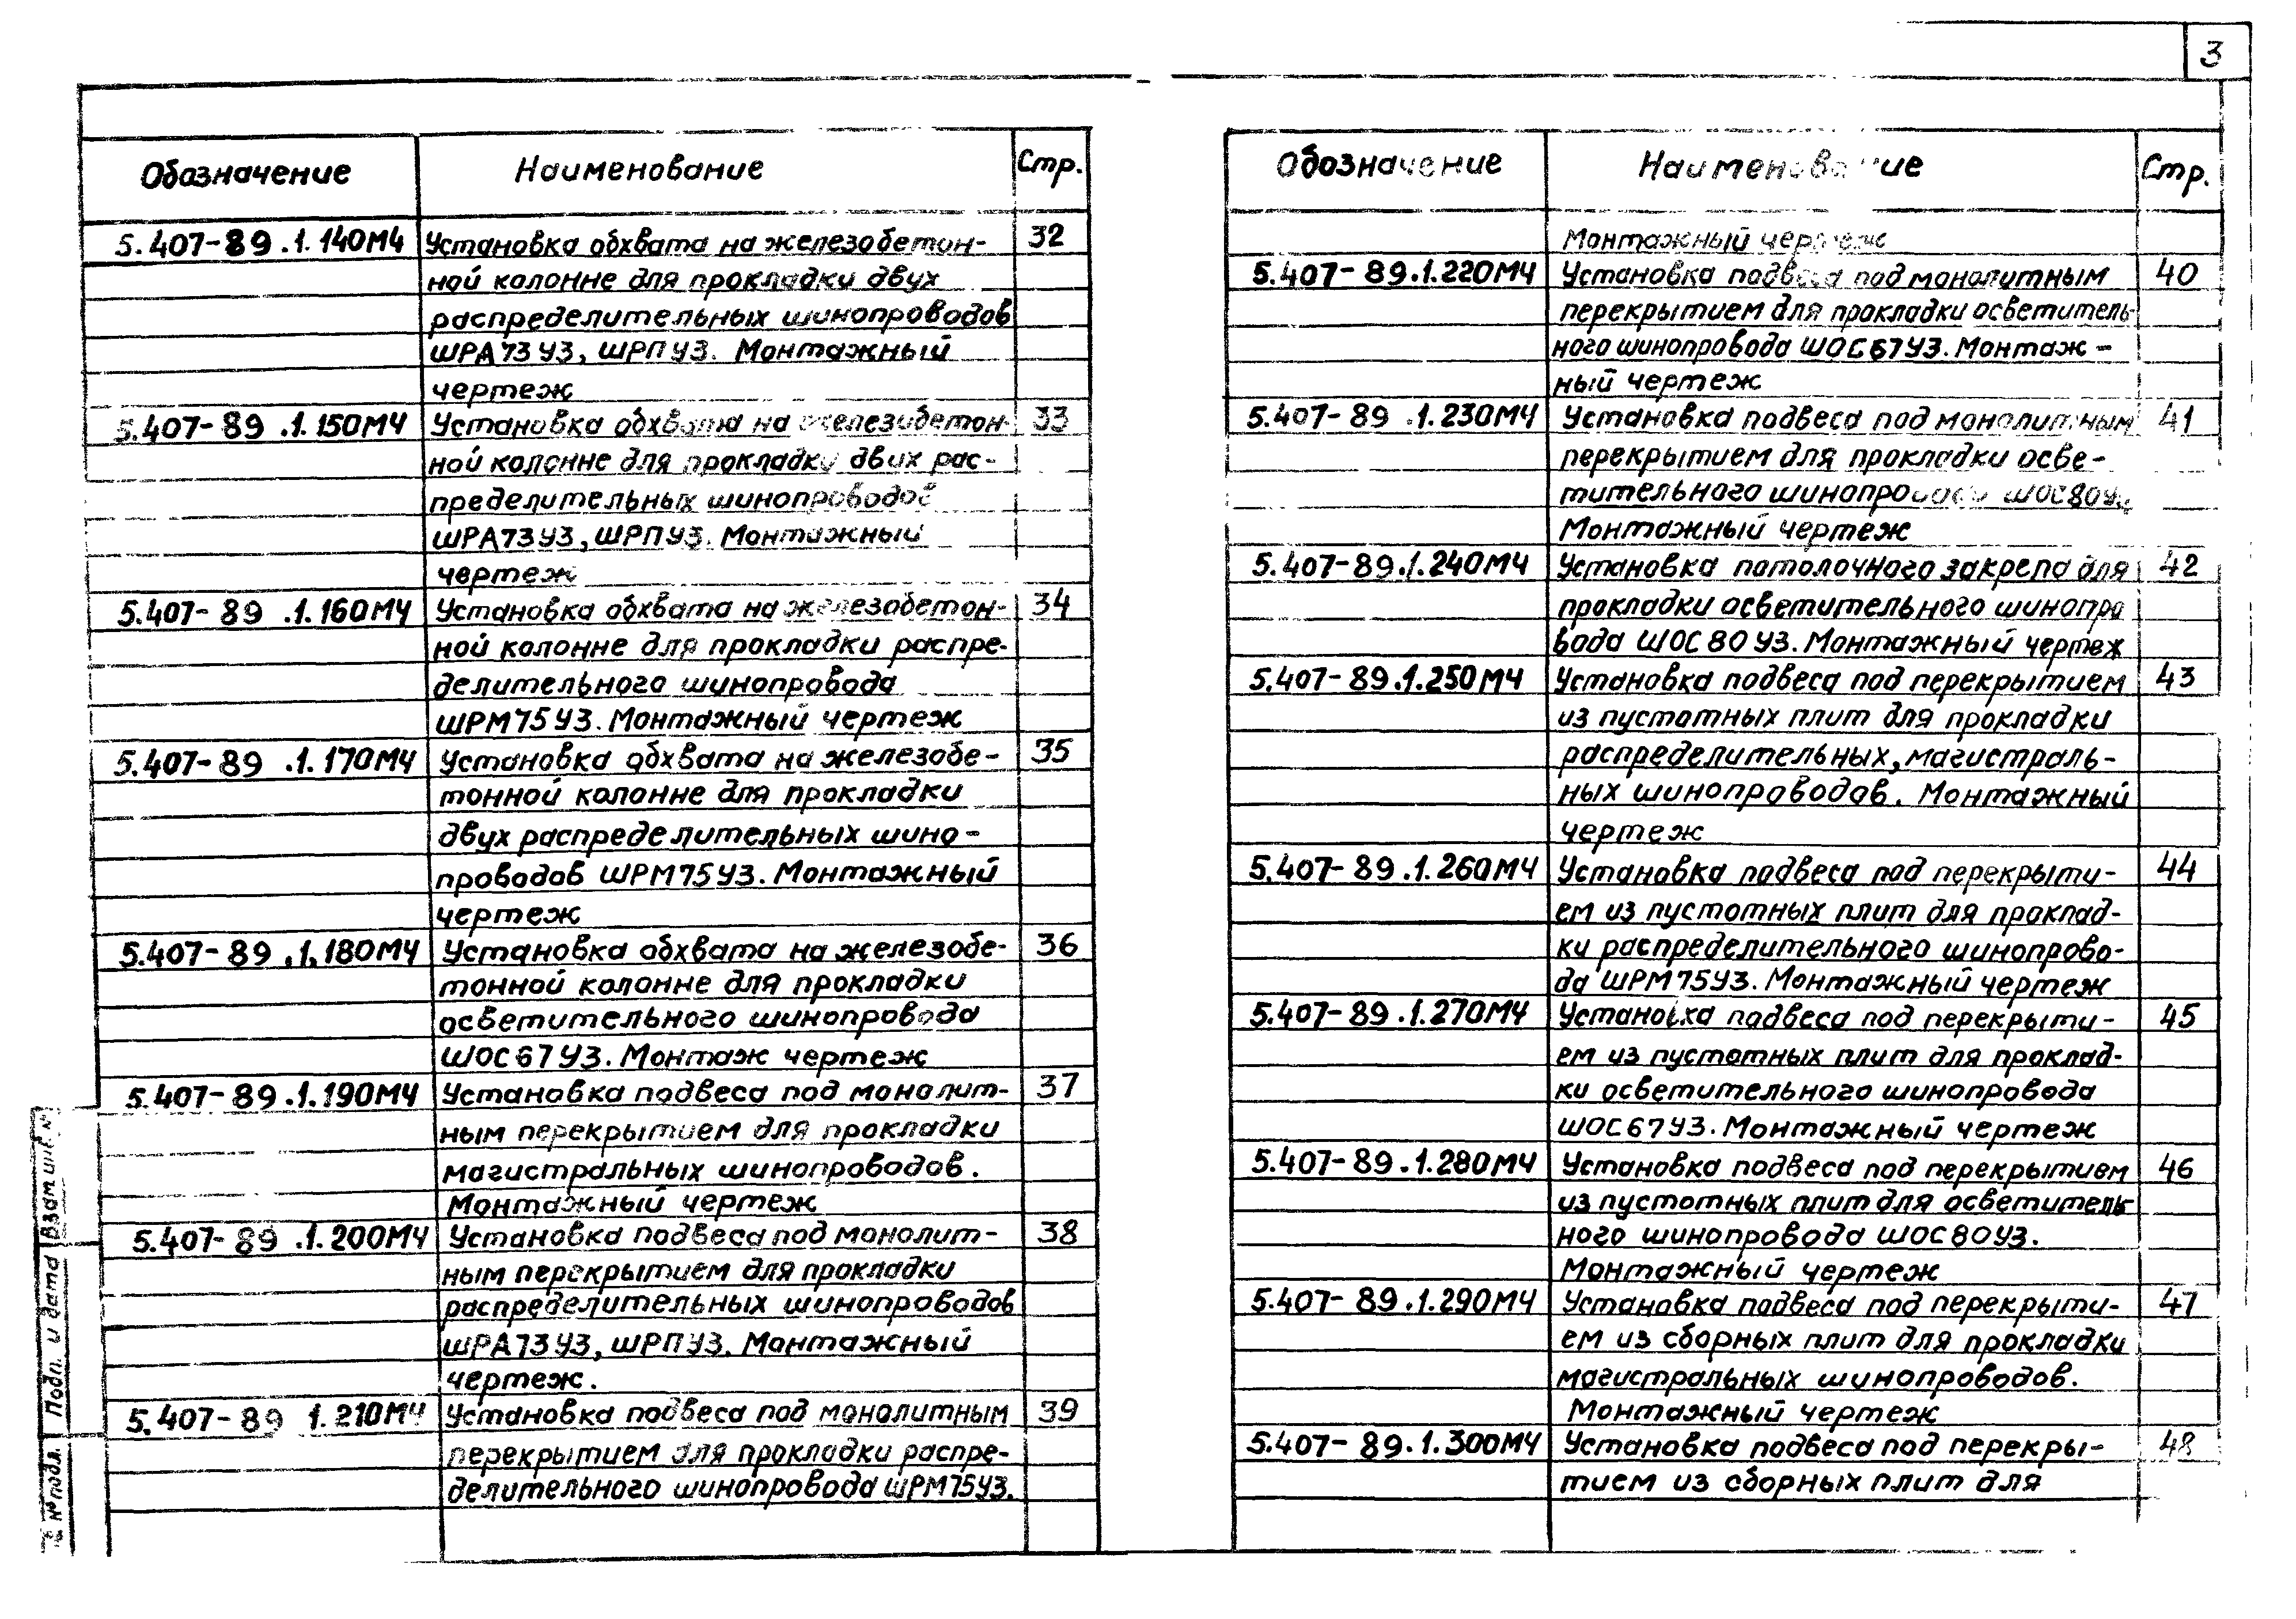 3
Обозначение Наименование Стр.
5.407-89.1.140МЧ Установка обхвата на железобетон- 32
ной колонне для прокладки двух
распределительных шинопроводов
ШРА73У3, ШРПУ3. Монтажный
чертеж
5.407-89.1.150МЧ Установка обхвата на железобетон- 33
ной колонне для прокладки двух рас-
пределительных шинопроводов
ШРА73У3, ШРПУ3. Монтажный
чертеж
5.407-89.1.160МЧ Установка обхвата на железобетон- 34
ной колонне для прокладки распре-
делительного шинопровода
ШРМ75У3. Монтажный чертеж
5.407-89.1.170МЧ Установка обхвата на железобе- 35
тонной колонне для прокладки
двух распределительных шино-
проводов ШРМ75У3. Монтажный
чертеж
5.407-89.1.180МЧ Установка обхвата на железобе- 36
тонной колонне для прокладки
осветительного шинопровода
ШОС67У3. Монтаж чертеж
5.407-89.1.190МЧ Установка подвеса под монолит- 37
ным перекрытием для прокладки
магистральных шинопроводов.
Монтажный чертеж
5.407-89.1.200МЧ Установка подвеса под монолит- 38
ным перекрытием для прокладки
распределительных шинопроводов
ШРА73У3, ШРПУ3. Монтажный
чертеж.
5.407-89 1.210МЧ Установка подвеса под монолитным 39
перекрытием для прокладки распре-
делительного шинопровода ШРМ75У3.
Обозначение Наименование Стр.
Монтажный чертеж
5.407-89.1.220МЧ Установка подвеса под монолитным 40
перекрытием для прокладки осветитель-
ного шинопровода ШОС67У3. Монтаж-
ный чертеж
5.407-89.1.230МЧ Установка подвеса под монолитным 41
перекрытием для прокладки осве-
тительного шинопровода ШОС80У3.
Монтажный чертеж
5.407-89.1.240МЧ Установка потолочного закрепа для 42
прокладки осветительного шинопро
вода ШОС80У3. Монтажный чертеж
5.407-89.1.250МЧ Установка подвеса под перекрытием 43
из пустотных плит для прокладки
распределительных, магистраль-
ных шинопроводов. Монтажный
чертеж
5.407-89.1.260МЧ Установка подвеса под перекрыти- 44
ем из пустотных плит для проклад-
ки распределительного шинопрово-
да ШРМ75У3. Монтажный чертеж
5.407-89.1.270МЧ Установка подвеса под перекрыти- 45
ем из пустотных плит для проклад-
ки осветительного шинопровода
ШОС67У3. Монтажный чертеж
5.407-89.1.280МЧ Установка подвеса под перекрытием 46
из пустотных плит для осветитель
ного шинопровода ШОС80У3.
Монтажный чертеж
5.407-89.1.290МЧ Установка подвеса под перекрыти- 47
ем из сборных плит для прокладки
магистральных шинопроводов.
Монтажный чертеж
5.407-89.1.300МЧ Установка подвеса под перекры- 48
тием из сборных плит для
Взам инв №
Подп. и дата
№ подл.